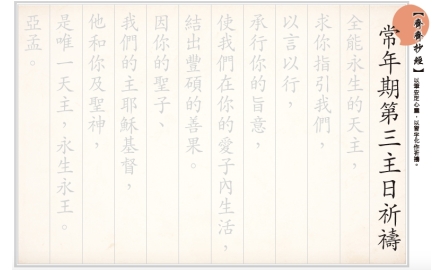 【齊齊抄經】
以筆安定心靈，以習字化作祈禱。
常年期第三主日祈禱
全能永生的天主，
求你指引我們，
以言以行，
承行你的旨意，
使我們在你的愛子內生活，
結出豐碩的善果。
因你的聖子、
我們的主耶穌基督，
他和你及聖神，
是唯一天主，永生永王。
亞孟。